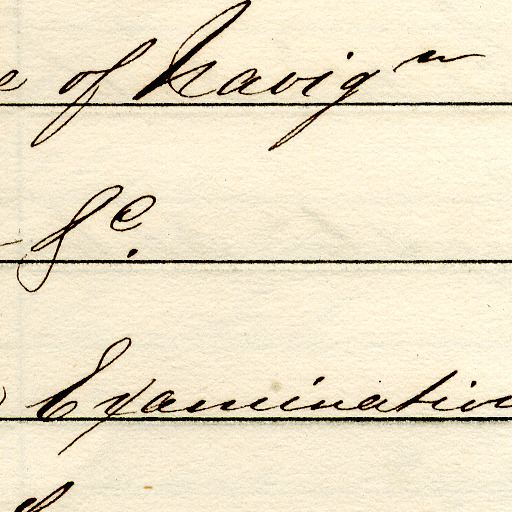 of Navigⁿ
&c.
Examination